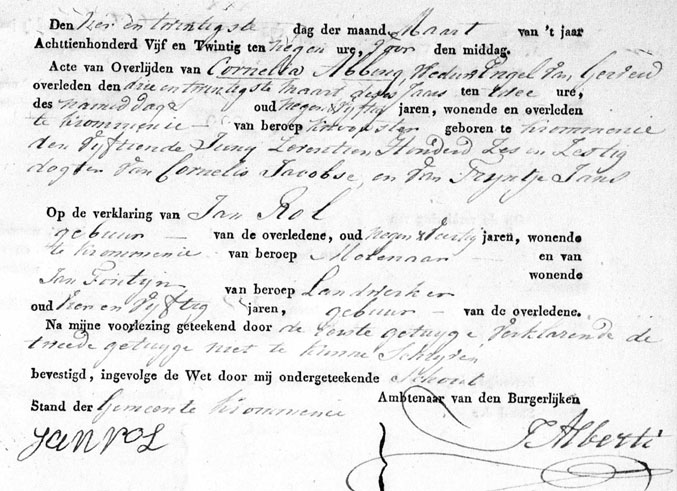 Den vier en twintigste dag der maand Maart van 't jaar
Achttienhonderd Vijf en Twintig ten negen ure, Voor den middag.
Acte van Overlijden van Cornelia Abbing Weduw Engel van
overleden den drie en twintigste maart deses Jaars ten twee ure,
des namiddags oud negen & Vyftig jaren, wonende en overleden
te Krommenie van beroep geboren te Krommenie
den Vyftiende Juny Zeventien Honderd Zes en Zestig
dogter van Cornelis Jacobse, en van Tryntje Jans
Op de verklaring van Jan Rol
gebuur van de overledene, oud negen & jaren, wonende
te Krommenie van beroep Molenaar en van
Jan Fontyn wonende
van beroep Landwerker
oud vier en Vyftig jaren, gebuur van de overledene.
Na mijne voorlezing geteekend door de eerste getuyge Verklarende de
tweede getuyge niet te kunne Schryven
bevestigd, ingevolge de Wet door mij ondergeteekende Schout
Ambtenaar van den Burgerlijken
Stand der Gemeente Krommenie
Jan Rol
Alberti